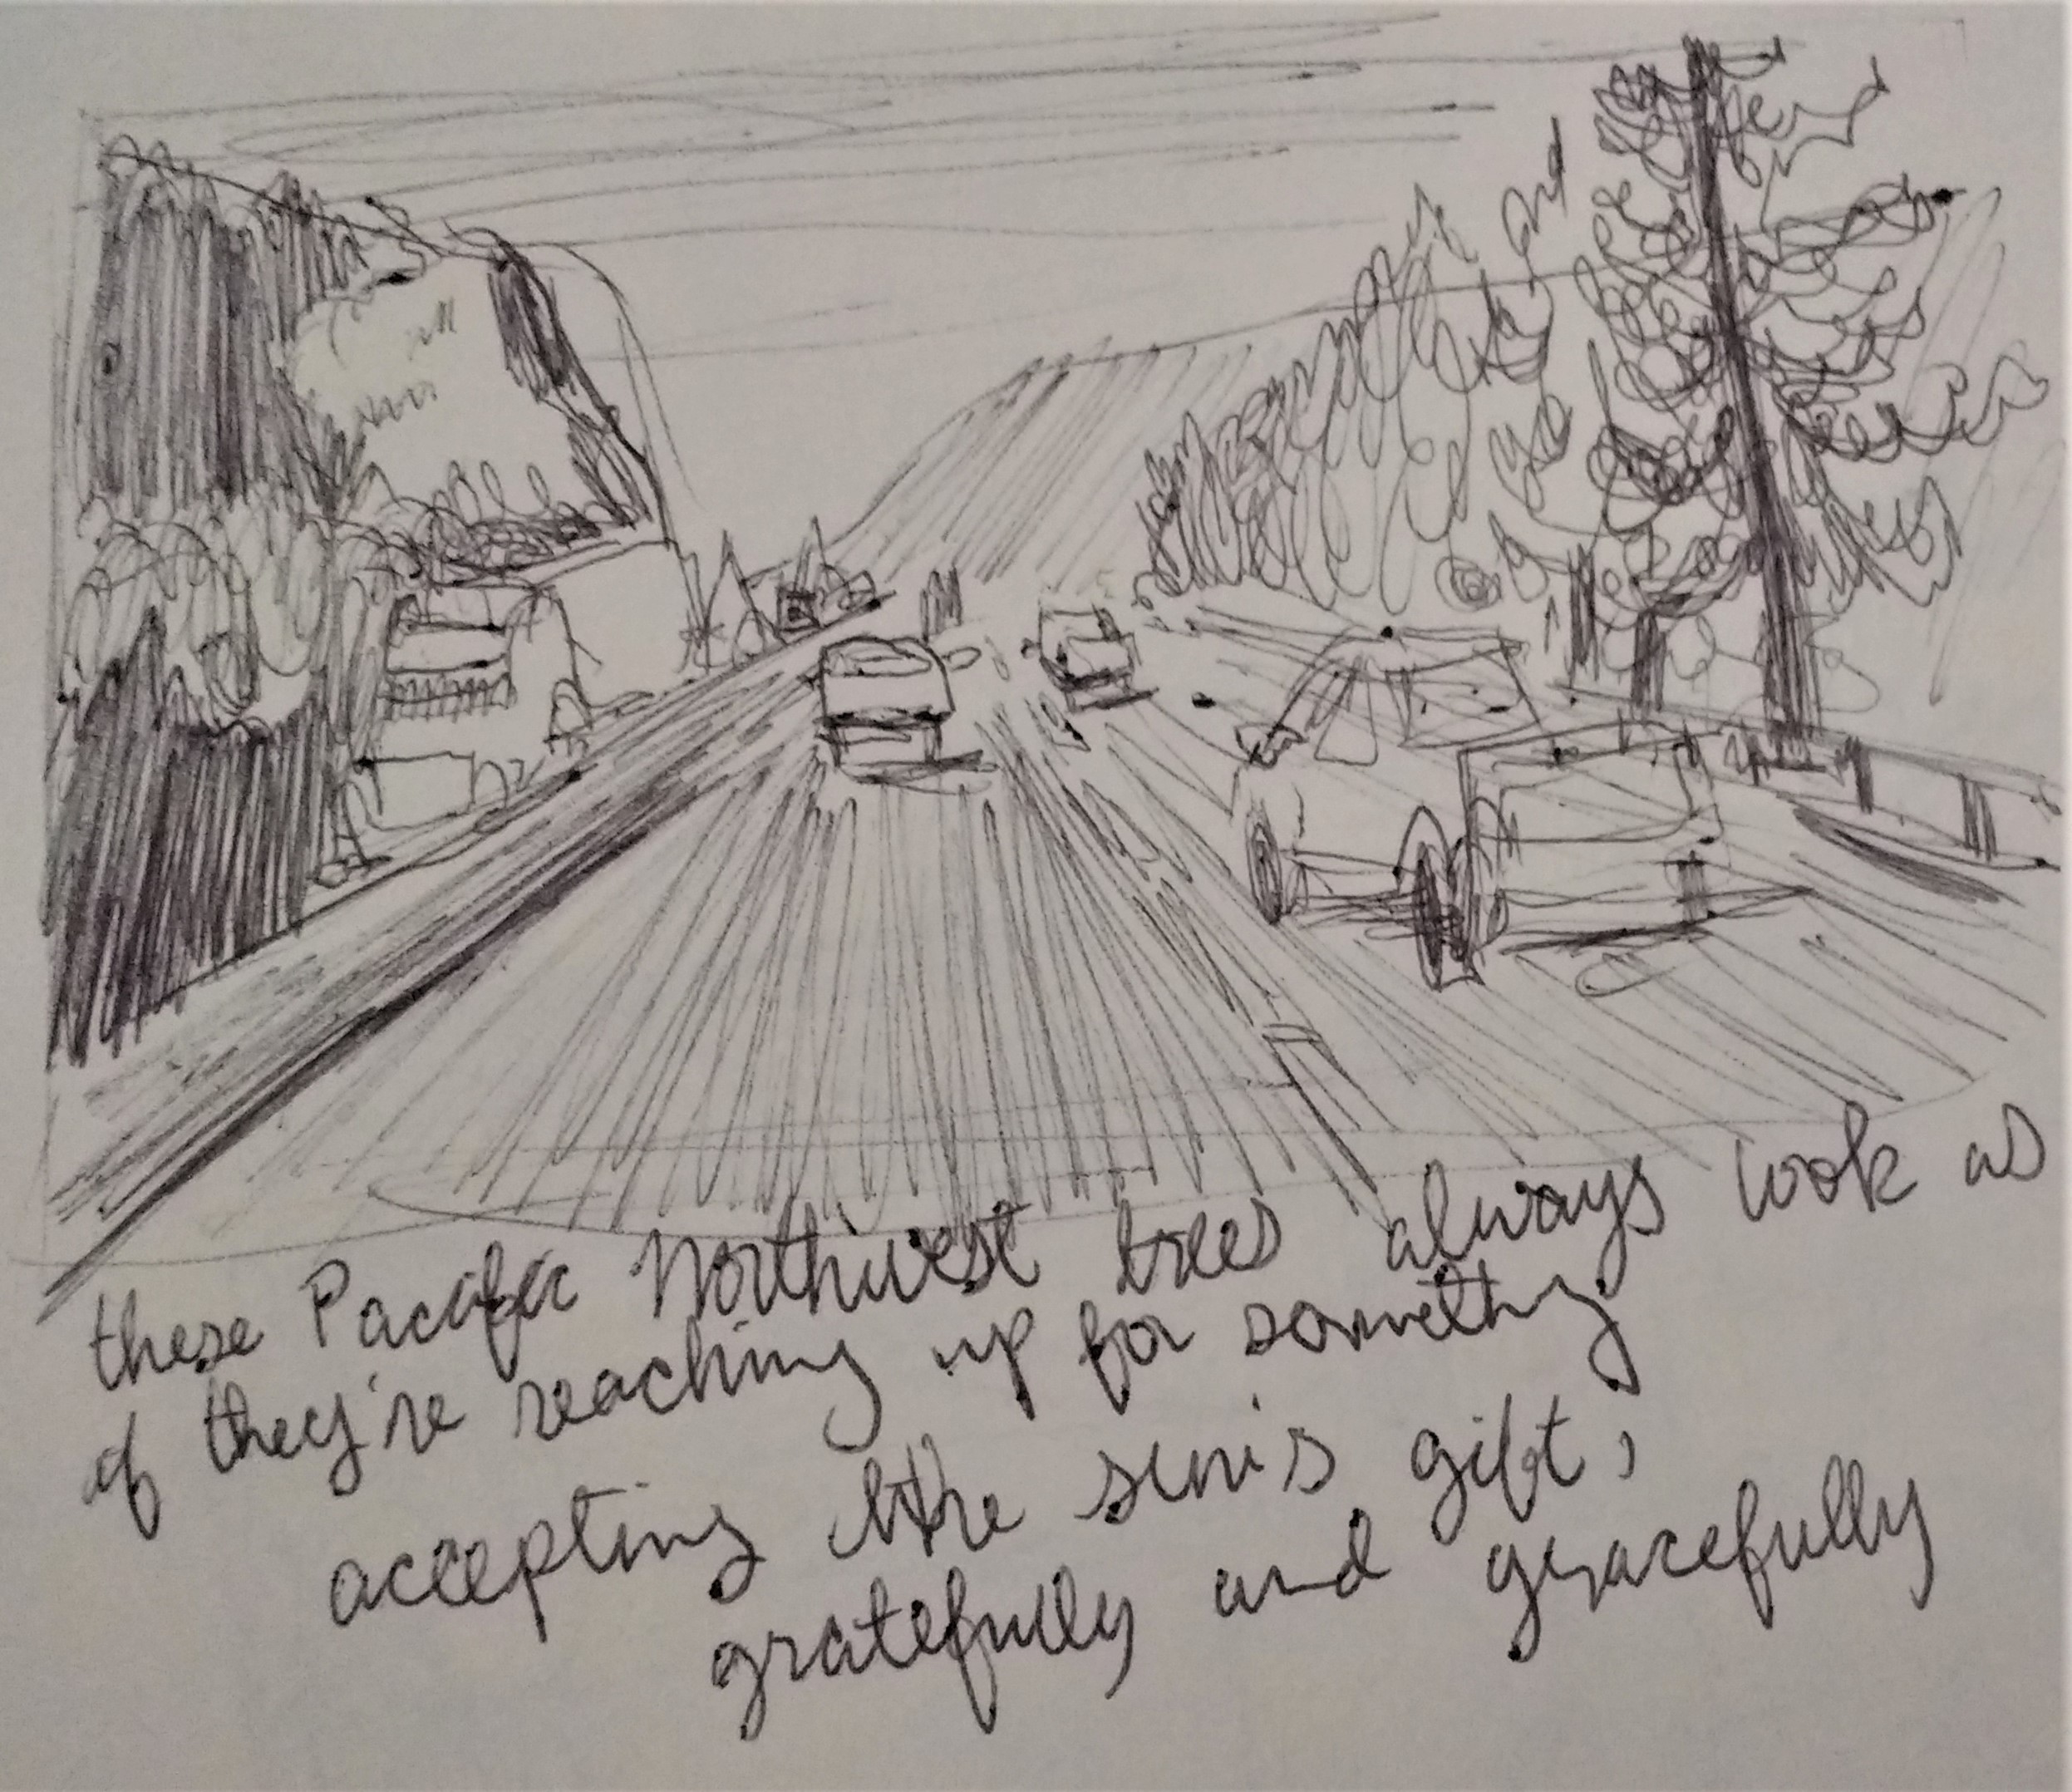 these Pacific Northwest trees always look as
if they're reaching up for something
accepting the sun's gift,
gratefully and gracefully